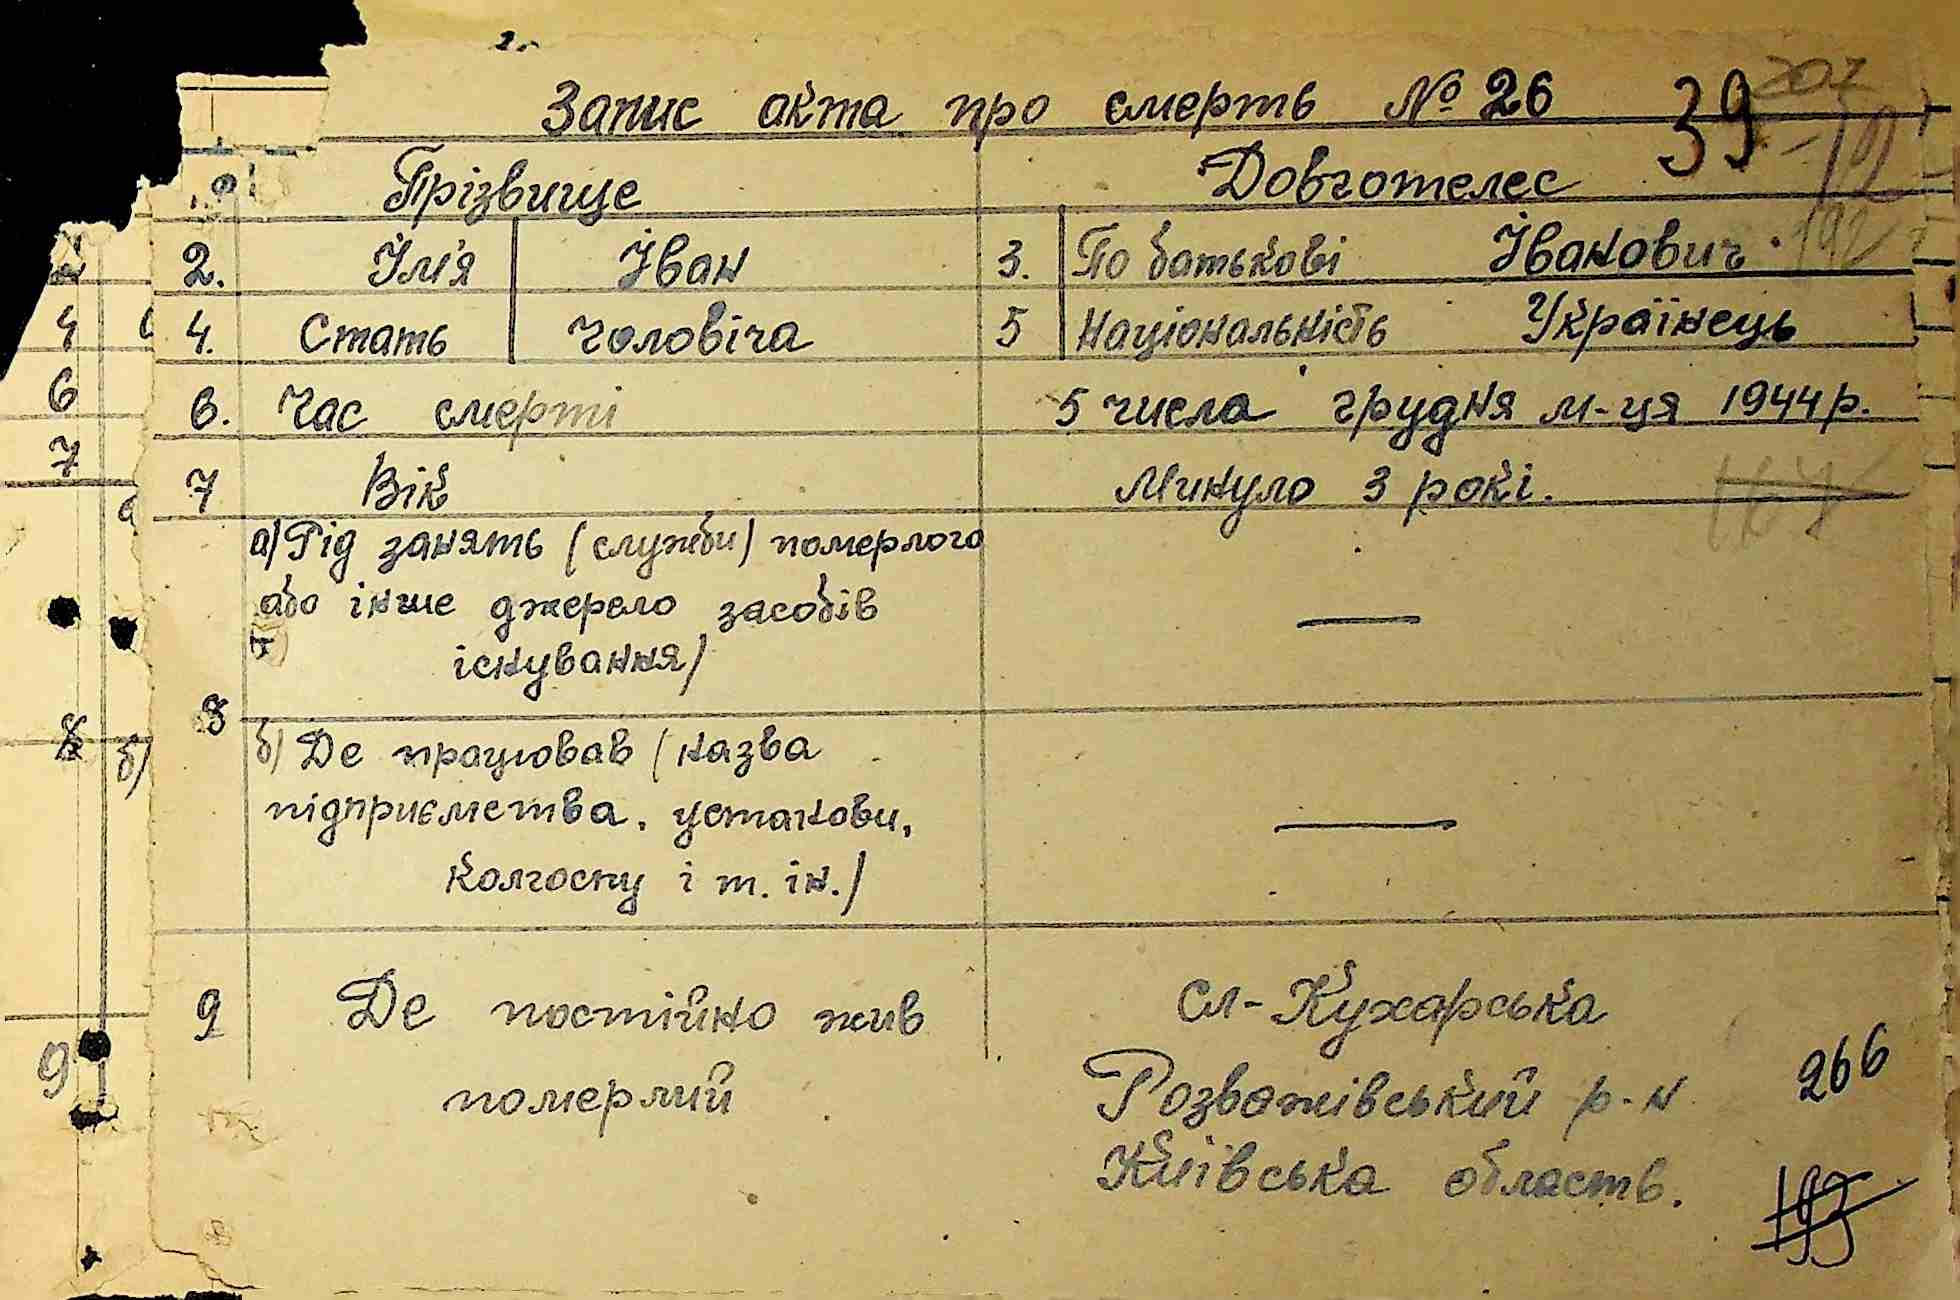 Запис акта про смерть № 26
39
Прізвище Довготелес
192
2. Ім'я Іван 3. По батькові Іванович
4. Стать Чоловіча 5 Національність Українець
6. Час смерті 5 числа грудня м-ця 1944 р.
7 Вік Минуло 3 рокі.
а) Рід занять (служби) померлого
або інше джерело засобів
існування) —
8
б) Де працював (назва
підприємства, установи,
колгоспу і т. ін.) —
9 Де постійно жив Сл-Кухарська
померлий Розважівський р-н
266
Київська область.
193
4
6
7
8 б)
9